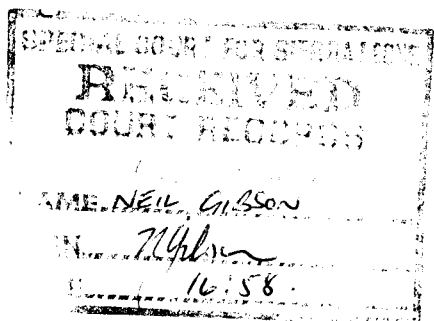 SPECIAL COURT FOR SIERRA LEONE
RECEIVED
COURT RECORDS
NAME NEIL GIBSON
16:58.